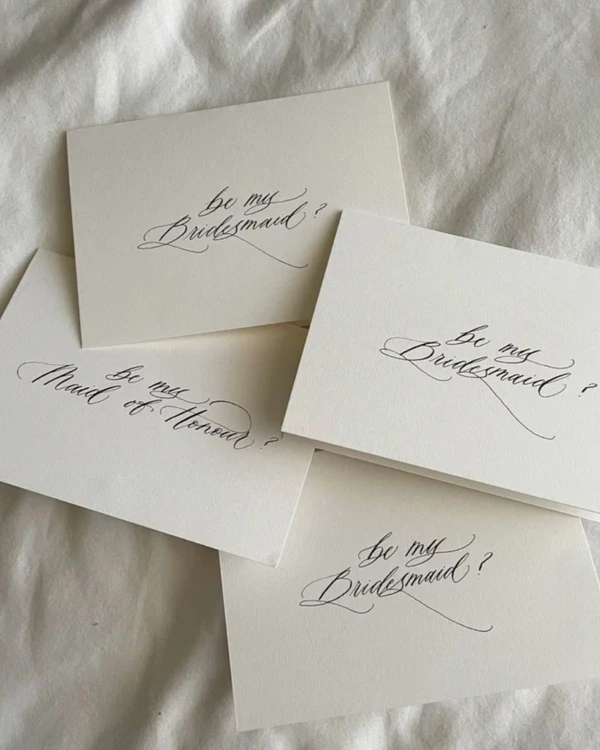 be my
Bridesmaid?
be my
Bridesmaid?
be my
Maid of Honour?
be my
Bridesmaid?